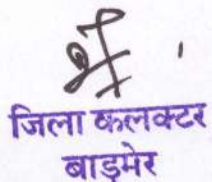 जिला कलक्टर
बाड़मेर